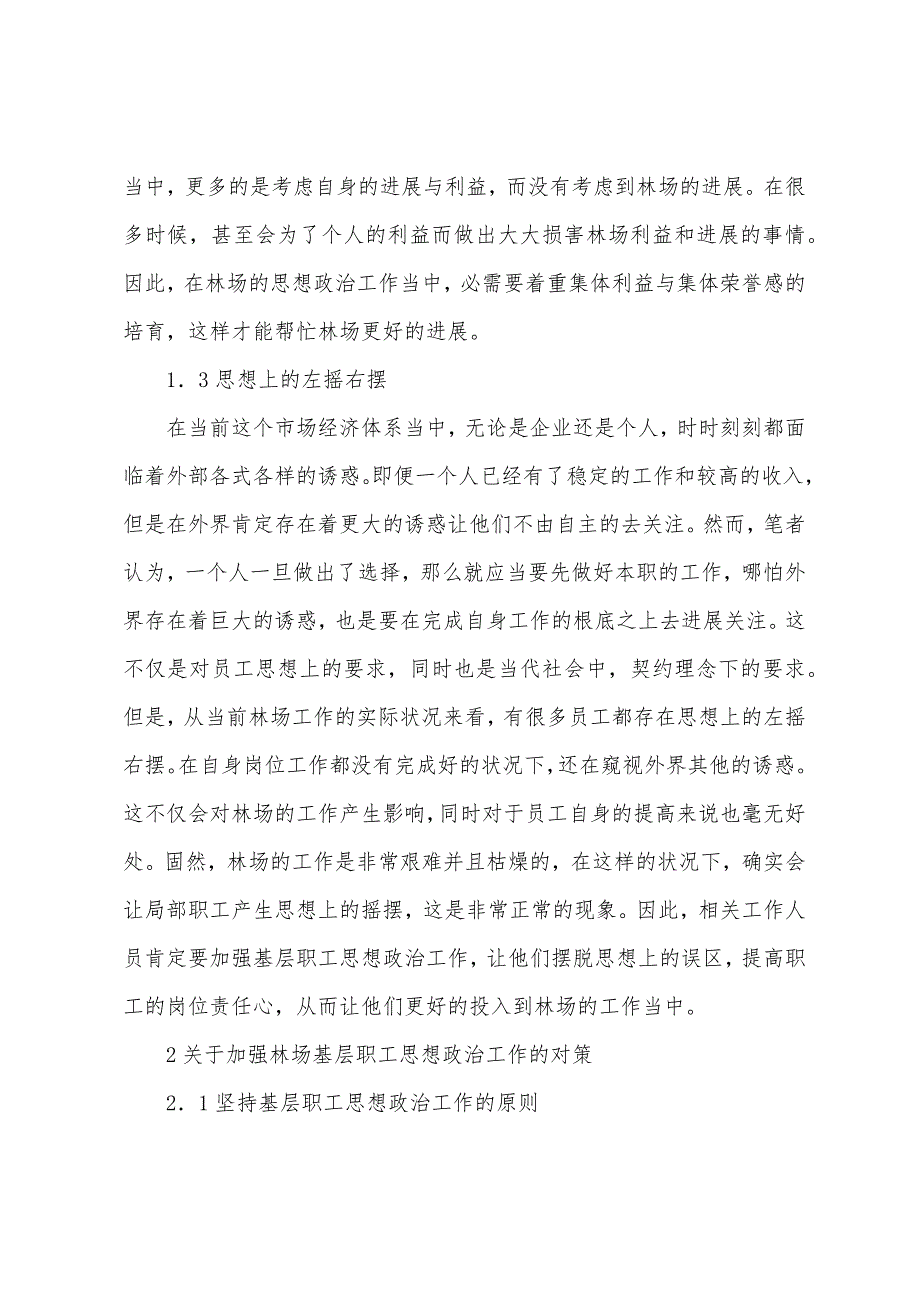 当中，更多的是考虑自身的进展与利益，而没有考虑到林场的进展。在很
多时候，甚至会为了个人的利益而做出大大损害林场利益和进展的事情。
因此，在林场的思想政治工作当中，必需要着重集体利益与集体荣誉感的
培育，这样才能帮忙林场更好的进展。
1．3思想上的左摇右摆
在当前这个市场经济体系当中，无论是企业还是个人，时时刻刻都面
临着外部各式各样的诱惑。即便一个人已经有了稳定的工作和较高的收入，
但是在外界肯定存在着更大的诱惑让他们不由自主的去关注。然而，笔者
认为，一个人一旦做出了选择，那么就应当要先做好本职的工作，哪怕外
界存在着巨大的诱惑，也是要在完成自身工作的根底之上去进展关注。这
不仅是对员工思想上的要求，同时也是当代社会中，契约理念下的要求。
但是，从当前林场工作的实际状况来看，有很多员工都存在思想上的左摇
右摆。在自身岗位工作都没有完成好的状况下，还在窥视外界其他的诱惑。
这不仅会对林场的工作产生影响，同时对于员工自身的提高来说也毫无好
处。固然，林场的工作是非常艰难并且枯燥的，在这样的状况下，确实会
让局部职工产生思想上的摇摆，这是非常正常的现象。因此，相关工作人
员肯定要加强基层职工思想政治工作，让他们摆脱思想上的误区，提高职
工的岗位责任心，从而让他们更好的投入到林场的工作当中。
2关于加强林场基层职工思想政治工作的对策
2．1坚持基层职工思想政治工作的原则